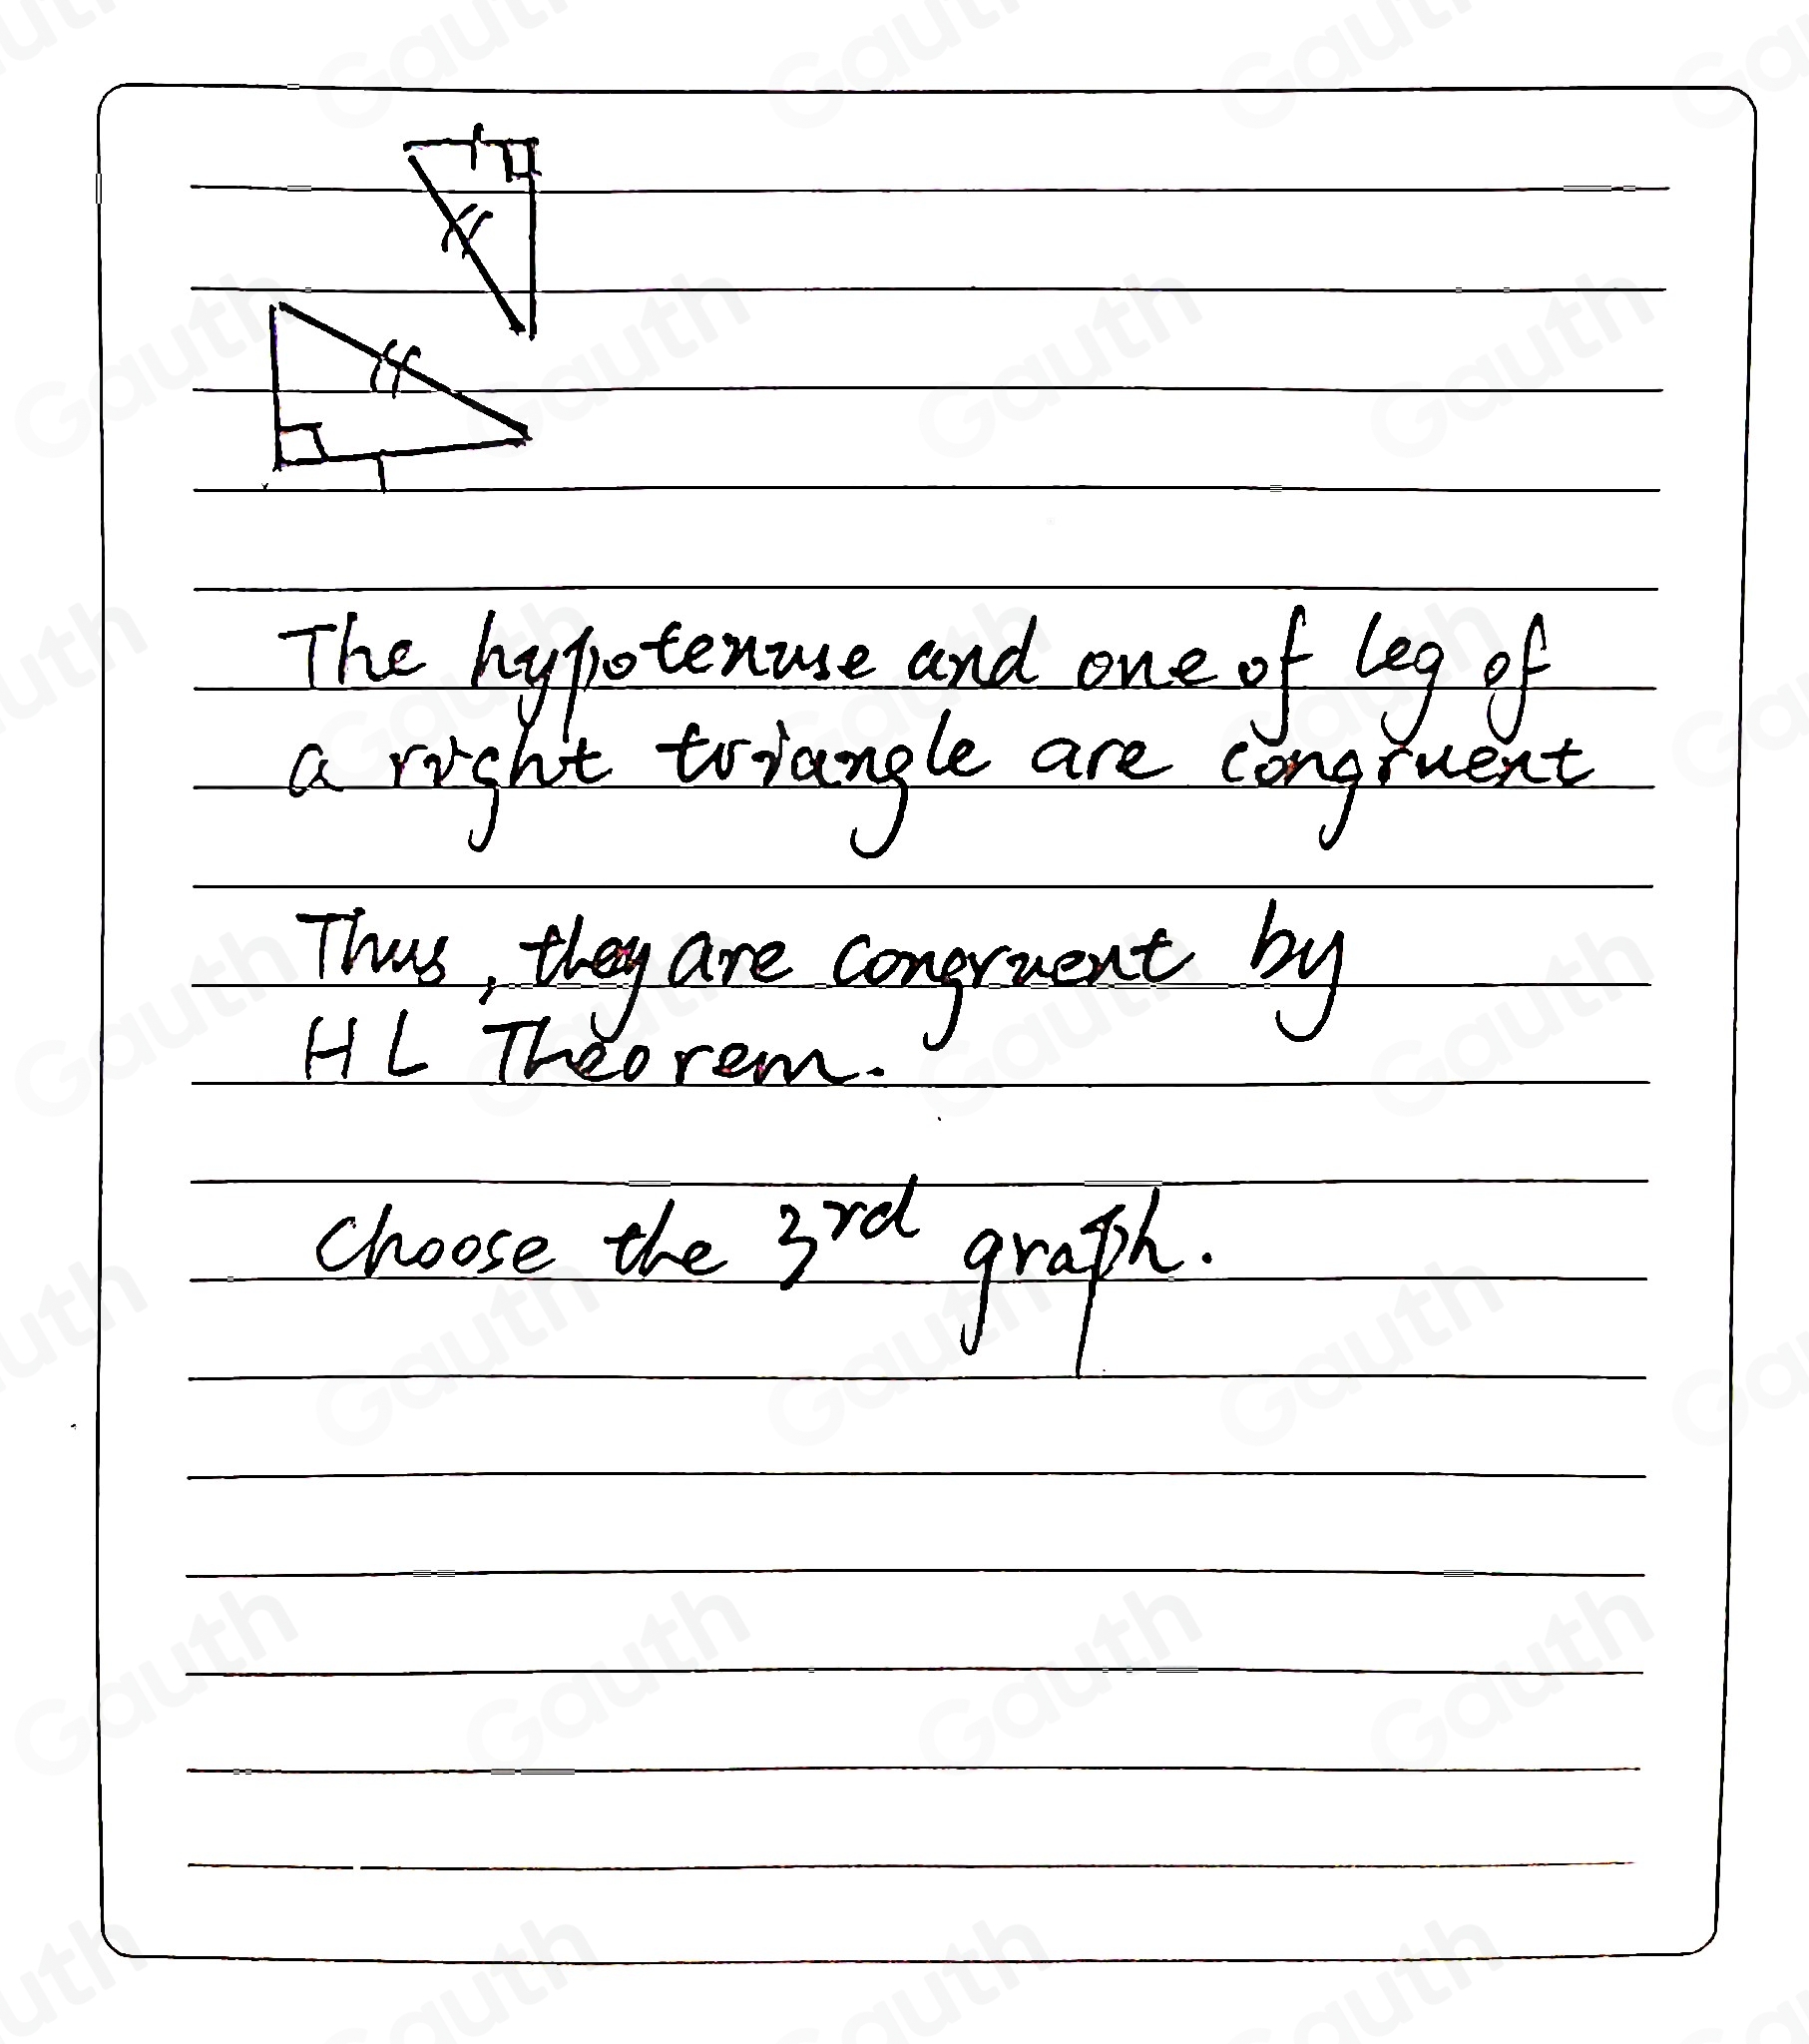 The hypotenuse and one of leg of
a right triangle are congruent
Thus, they are congruent by
HL Theorem.
Choose the 3rd graph.